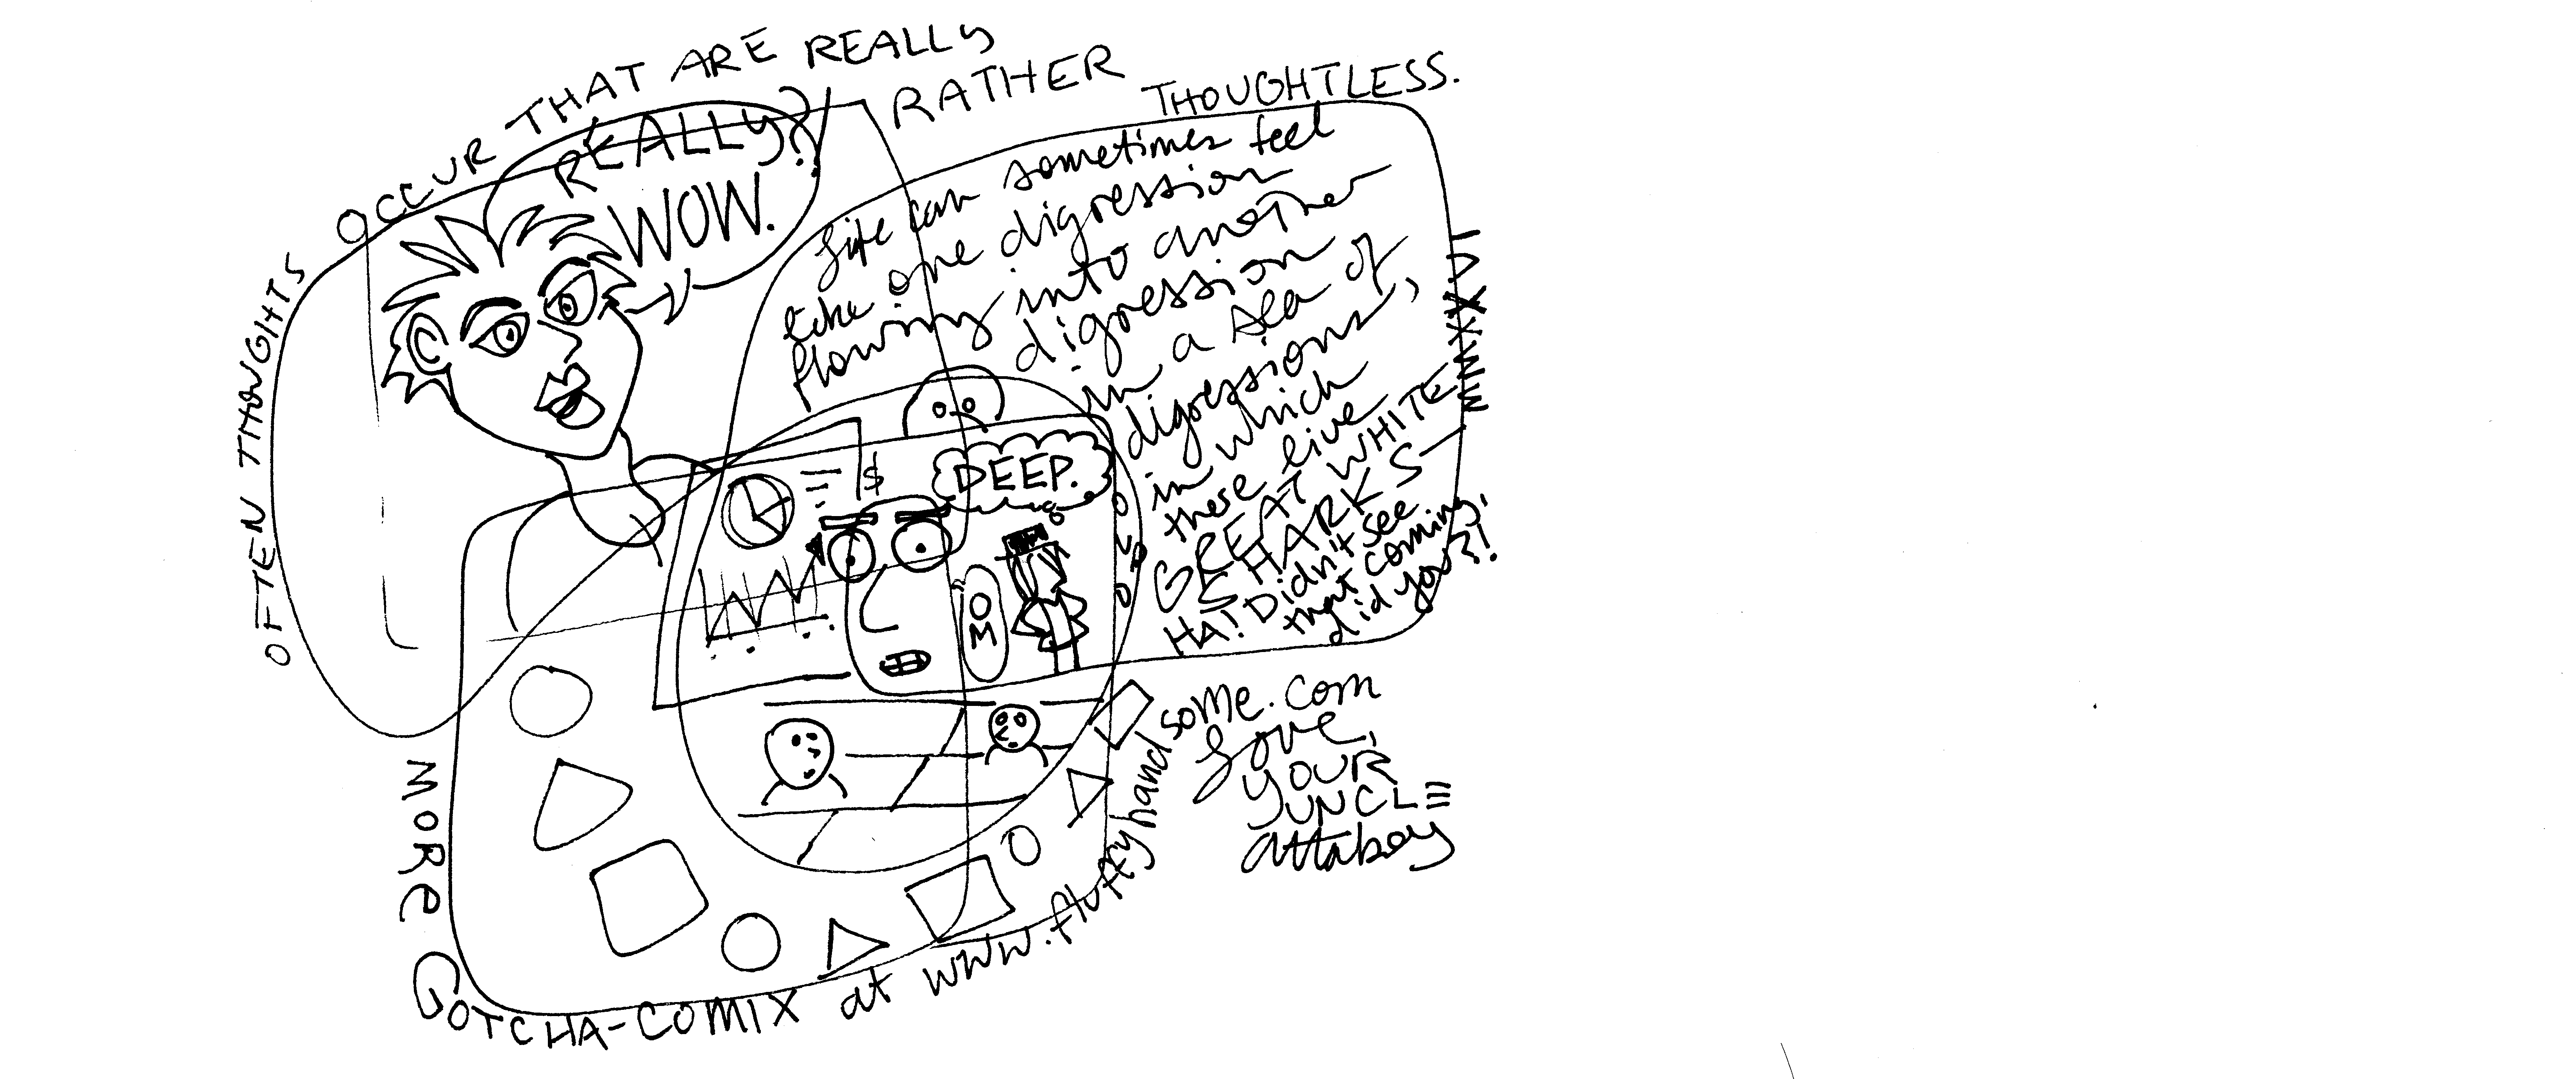 OFTEN THOUGHTS OCCUR THAT ARE REALLY RATHER THOUGHTLESS.
REALLY?!
WOW.
Life can sometimes feel
like one digression
flowing into another
digression
in a sea of
digressions,
in which
these live
GREAT WHITE
SHARKS—
HA! Didn't see
that coming,
did you?!
$
DEEP.
OM
MORE GOTCHA-COMIX at www.fluffyhandsome.com
Love,
YOUR
UNCLE
attaboy